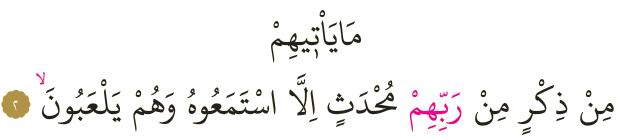 مَا يَأْت۪يهِمْ
مِنْ ذِكْرٍ مِنْ رَبِّهِمْ مُحْدَثٍ اِلَّا اسْتَمَعُوهُ وَهُمْ يَلْعَبُونَۙ ﴿٢﴾